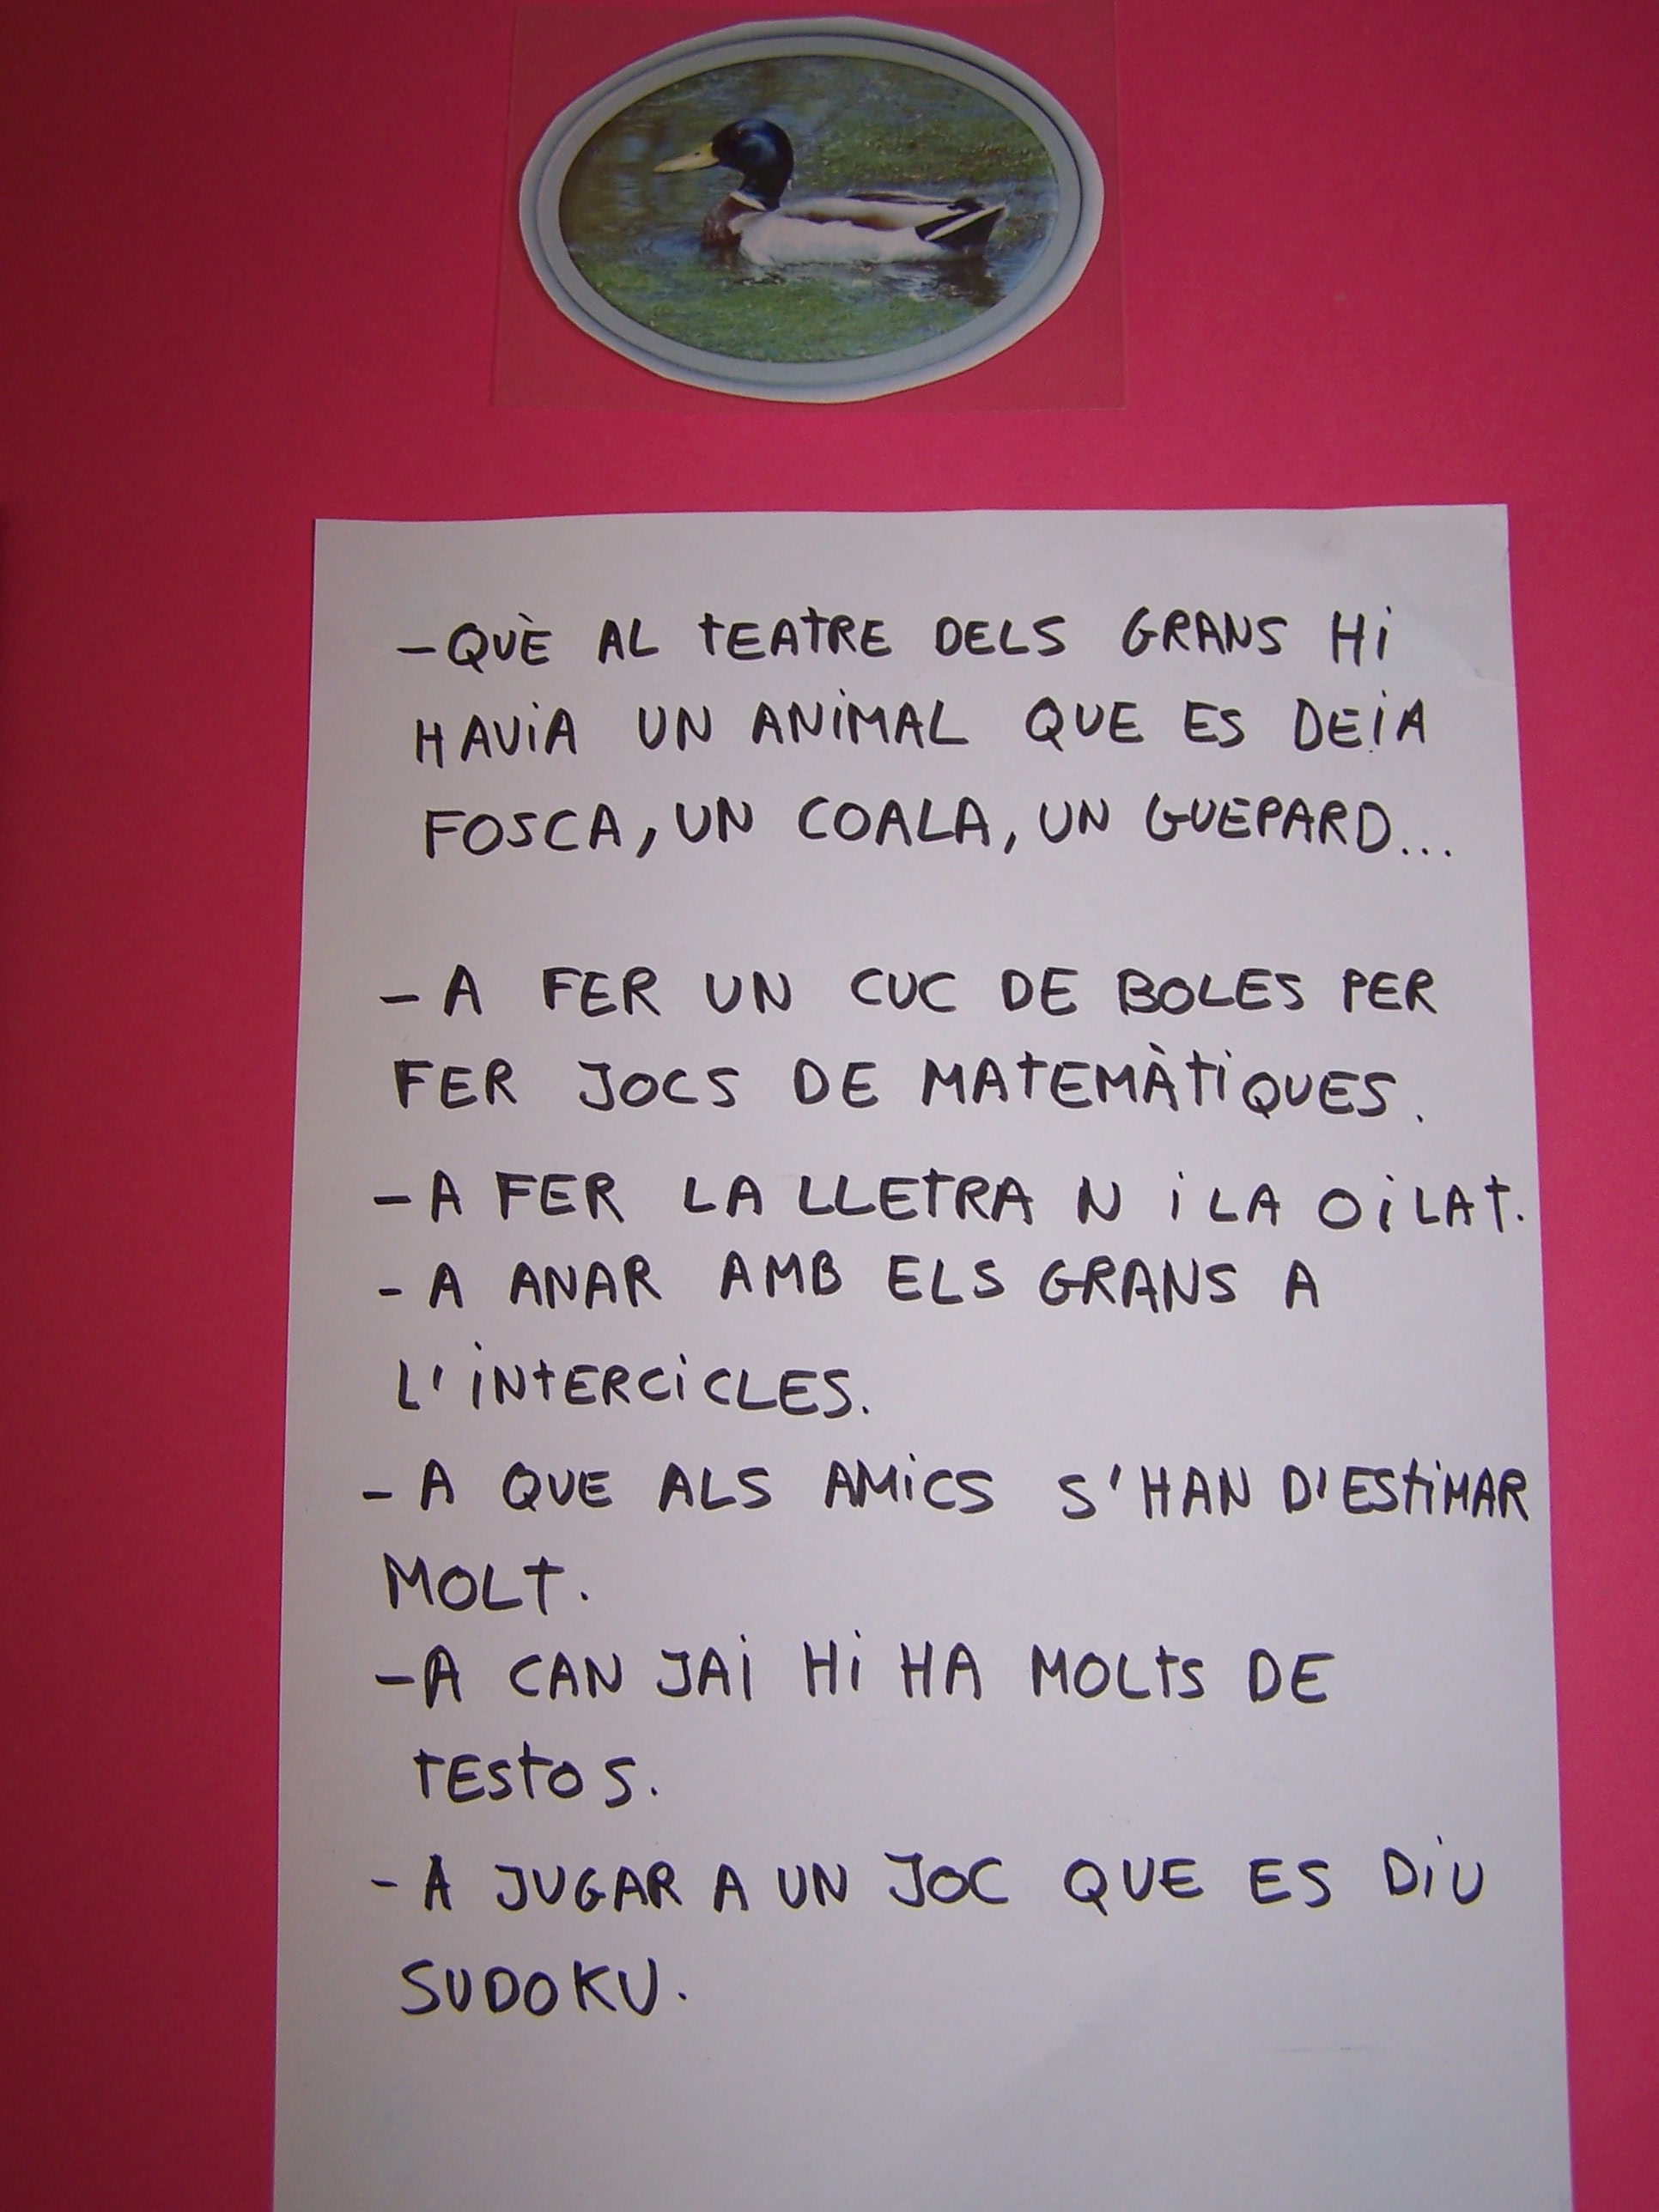 -QUÈ AL TEATRE DELS GRANS HI
HAVIA UN ANIMAL QUE ES DEIA
FOSCA, UN COALA, UN GUEPARD...
- A FER UN CUC DE BOLES PER
FER JOCS DE MATEMÀTIQUES.
- A FER LA LLETRA N I LA O I LA T.
- A ANAR AMB ELS GRANS A
L'INTERCICLES.
- A QUE ALS AMICS S'HAN D'ESTIMAR
MOLT.
- A CAN JAI HI HA MOLTS DE
TESTOS.
- A JUGAR A UN JOC QUE ES DIU
SUDOKU.